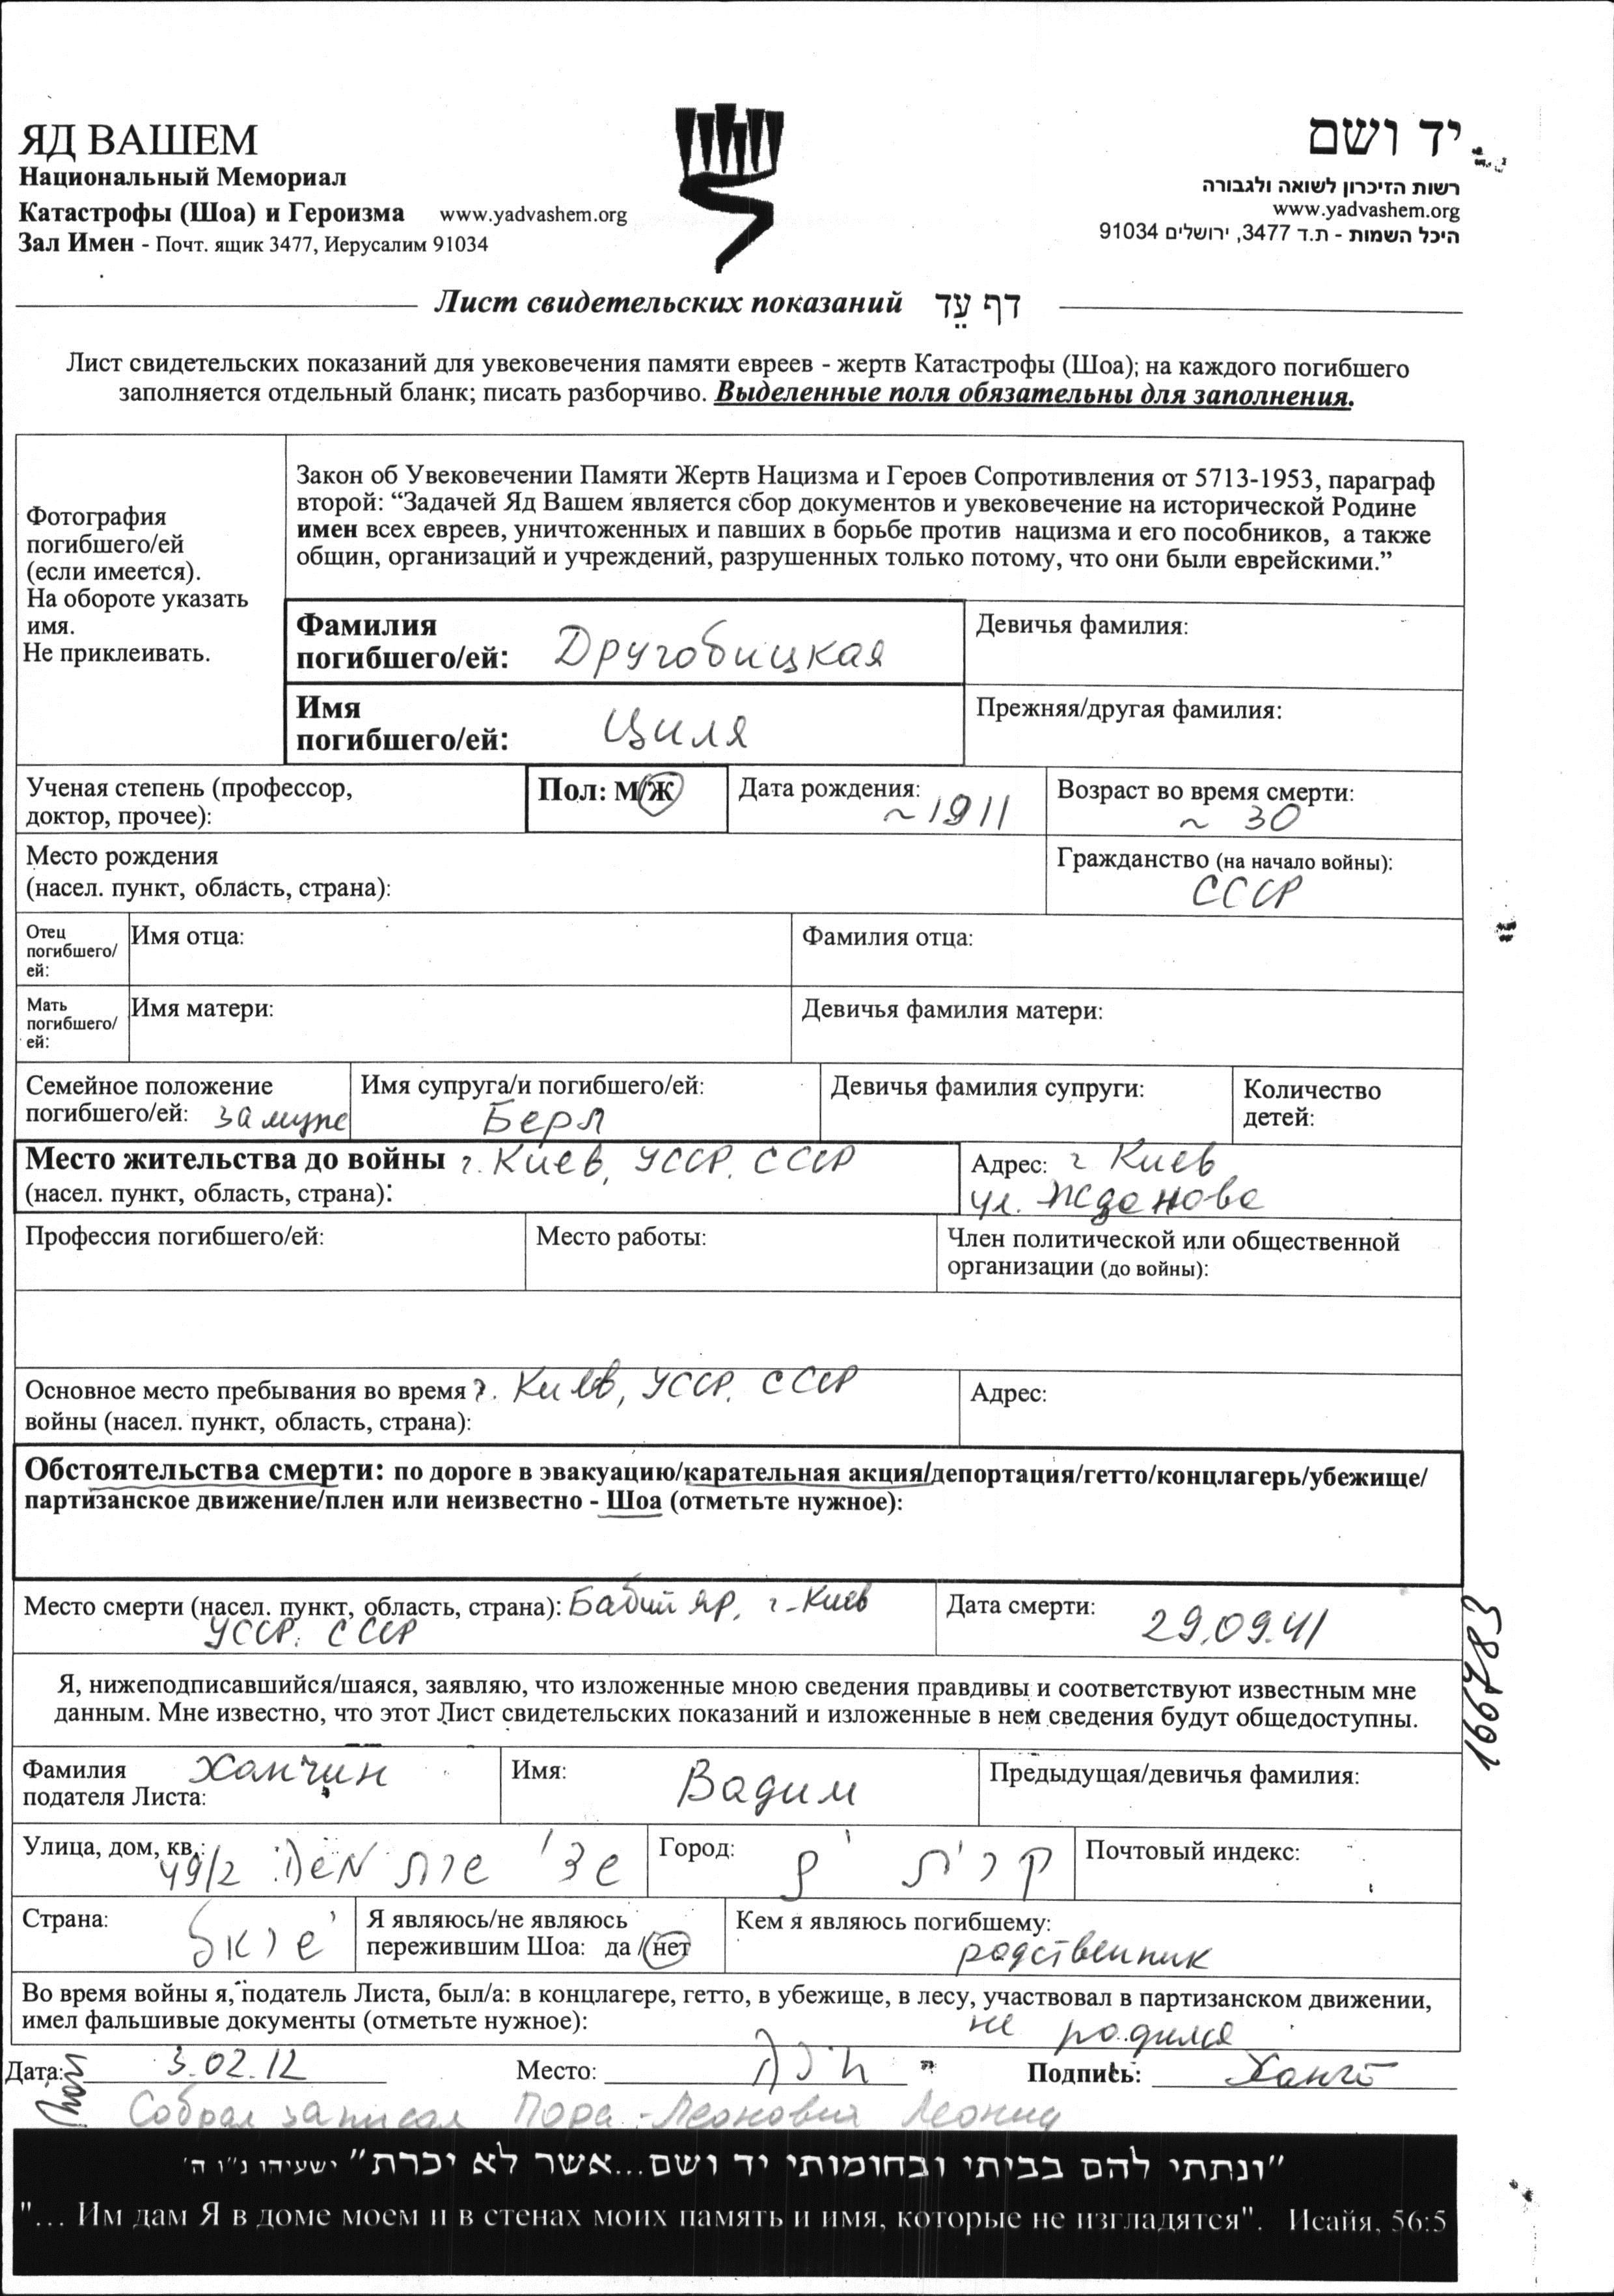 ЯД ВАШЕМ
Национальный Мемориал
Катастрофы (Шоа) и Героизма www.yadvashem.org
Зал Имен - Почт. ящик 3477, Иерусалим 91034
יד ושם
רשות הזיכרון לשואה ולגבורה
www.yadvashem.org
היכל השמות - ת.ד 3477, ירושלים 91034
Лист свидетельских показаний דף עֵד
Лист свидетельских показаний для увековечения памяти евреев - жертв Катастрофы (Шоа); на каждого погибшего
заполняется отдельный бланк; писать разборчиво. Выделенные поля обязательны для заполнения.
Фотография
погибшего/ей
(если имеется).
На обороте указать
имя.
Не приклеивать.
Закон об Увековечении Памяти Жертв Нацизма и Героев Сопротивления от 5713-1953, параграф
второй: “Задачей Яд Вашем является сбор документов и увековечение на исторической Родине
имен всех евреев, уничтоженных и павших в борьбе против нацизма и его пособников, а также
общин, организаций и учреждений, разрушенных только потому, что они были еврейскими.”
Фамилия
погибшего/ей: Другобицкая
Девичья фамилия:
Имя
погибшего/ей: Циля
Прежняя/другая фамилия:
Ученая степень (профессор,
доктор, прочее):
Пол: М/Ж
Дата рождения:
~1911
Возраст во время смерти:
~ 30
Место рождения
(насел. пункт, область, страна):
Гражданство (на начало войны):
СССР
Отец
погибшего/
ей:
Имя отца:
Фамилия отца:
Мать
погибшего/
ей:
Имя матери:
Девичья фамилия матери:
Семейное положение
погибшего/ей: замуже
Имя супруга/и погибшего/ей:
Берл
Девичья фамилия супруги:
Количество
детей:
Место жительства до войны г. Киев, УССР, СССР
(насел. пункт, область, страна):
Адрес: г Киев
ул. Жданова
Профессия погибшего/ей:
Место работы:
Член политической или общественной
организации (до войны):
Основное место пребывания во время г. Киев, УССР, СССР
войны (насел. пункт, область, страна):
Адрес:
Обстоятельства смерти: по дороге в эвакуацию/карательная акция/депортация/гетто/концлагерь/убежище/
партизанское движение/плен или неизвестно - Шоа (отметьте нужное):
Место смерти (насел. пункт, область, страна): Бабий Яр, г. Киев
УССР. СССР
Дата смерти:
29.09.41
166783
Я, нижеподписавшийся/шаяся, заявляю, что изложенные мною сведения правдивы и соответствуют известным мне
данным. Мне известно, что этот Лист свидетельских показаний и изложенные в нем сведения будут общедоступны.
Фамилия Хамчин
подателя Листа:
Имя:
Вадим
Предыдущая/девичья фамилия:
Улица, дом, кв.:
49/2
Город:
קרית ים
Почтовый индекс:
Страна:
Я являюсь/не являюсь
пережившим Шоа: да / нет
Кем я являюсь погибшему:
родственник
Во время войны я, податель Листа, был/а: в концлагере, гетто, в убежище, в лесу, участвовал в партизанском движении,
имел фальшивые документы (отметьте нужное):
не родился
Дата: 3.02.12
Место: חיפה
Подпись:
Собрал записал Пора-Леонович Леонид
"ונתתי להם בביתי ובחומותי יד ושם...אשר לא יכרת" ישעיהו נ"ו ה'
"... Им дам Я в доме моем и в стенах моих память и имя, которые не изгладятся". Исайя, 56:5